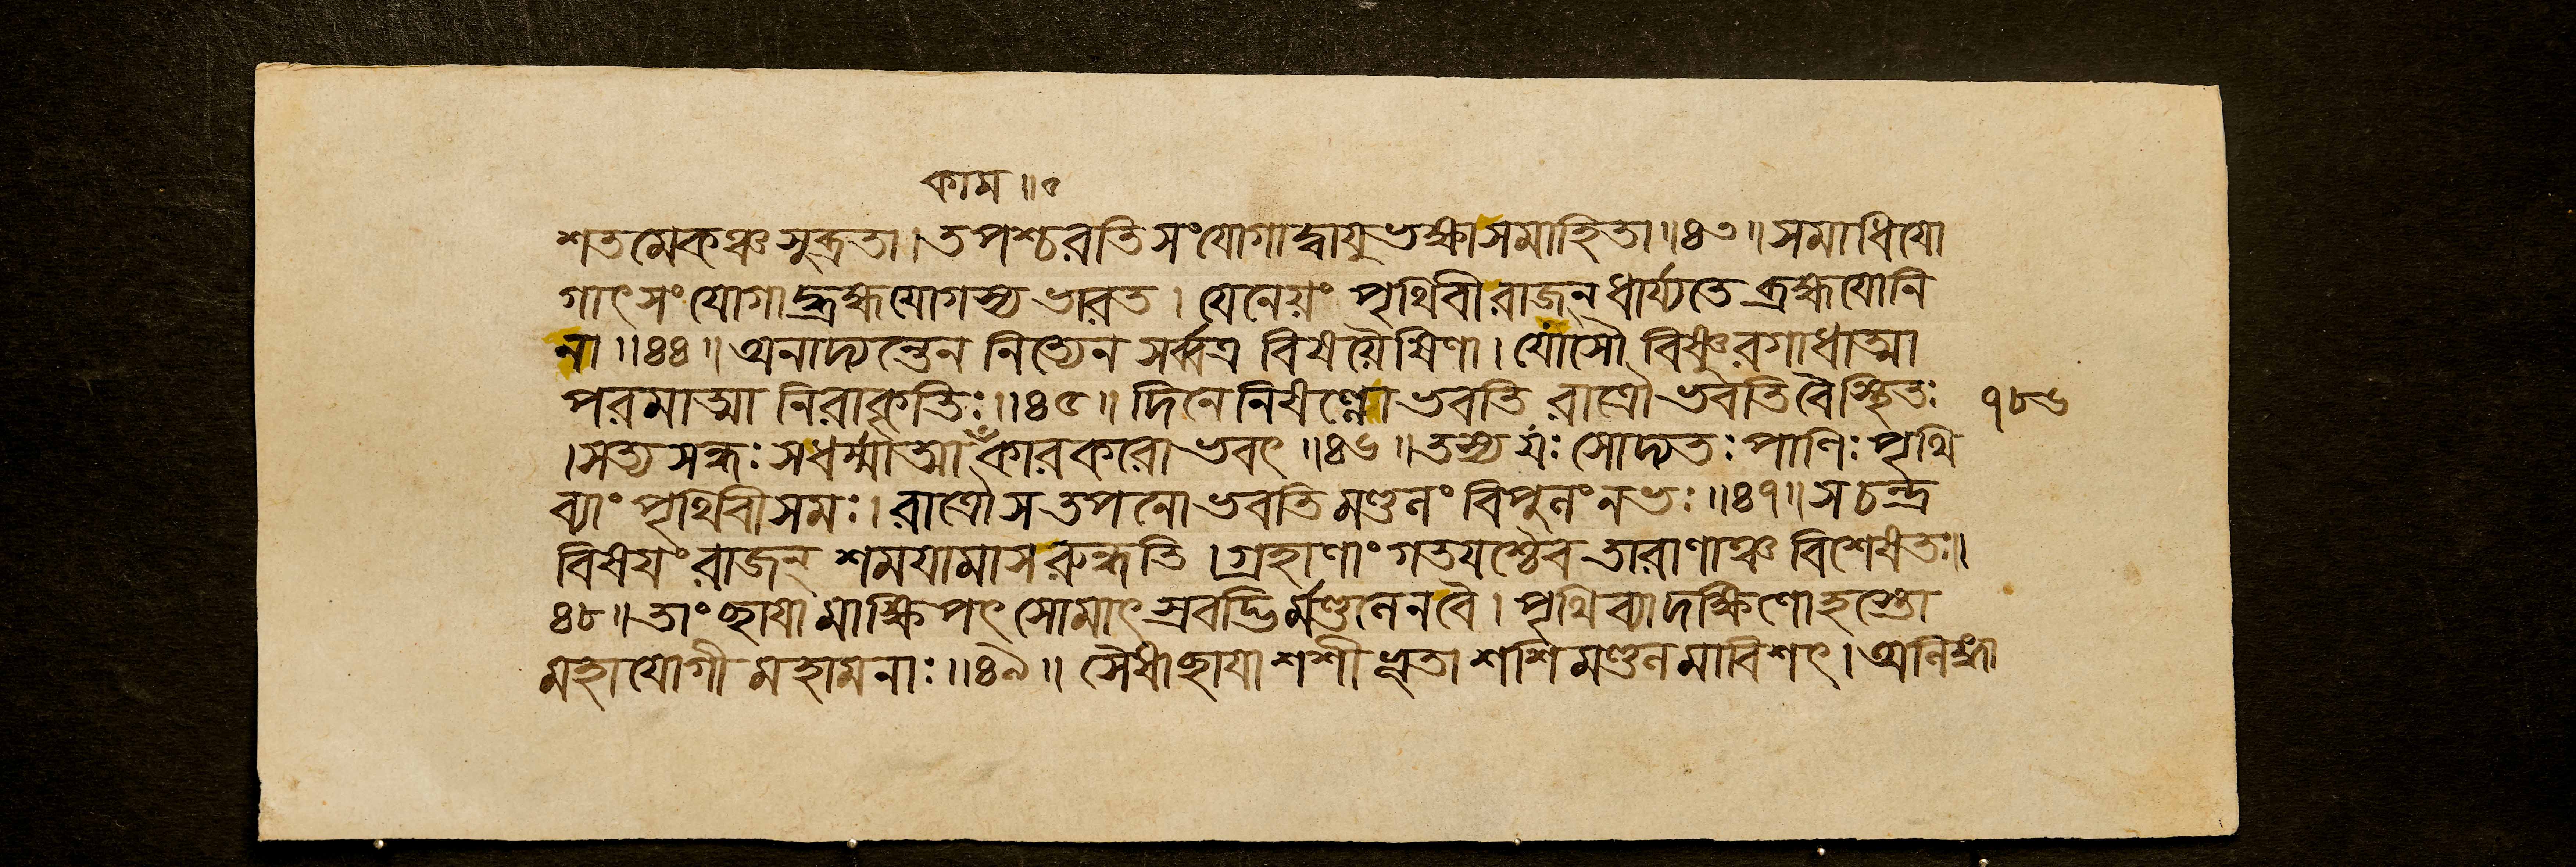 কাম ॥ ৫
শতমেকঞ্চ সুব্রতা । তপশ্চরতি সংযোগাদ্বায়ুভক্ষা সমাহিতা ॥ ৪৩ ॥ সমাধিযো
গাৎ সংযোগাদ্ব্রহ্মযোগস্য ভারত । যেনেয়ং পৃথিবী রাজন্ ধার্য্যতে ব্রহ্মযোনি
না ॥ ৪৪ ॥ অনাদ্যন্তেন নিত্যেন সর্ব্বত্র বিষয়ৈষিণা । যোসৌ বিষ্ণুরগাধাত্মা
পরমাত্মা নিরাকৃতিঃ ॥ ৪৫ ॥ দিনে নিষণ্ণো ভবতি রাত্রৌ ভবতি বোত্থিতঃ ১৮৬
। সত্যসন্ধঃ স ধর্ম্মাত্মা কারকরো ভবৎ ॥ ৪৬ ॥ তস্য যঃ সোদ্যতঃ পাণিঃ পৃথি
ব্যাং পৃথিবীসমঃ । রাত্রৌ স তপনো ভবতি মণ্ডলং বিপুলং নভঃ ॥ ৪৭ ॥ স চন্দ্র
বিষয়ং রাজন্ শময়ামাস রুন্ধতি । গ্রহাণাং গতয়শ্চৈব তারাণাঞ্চ বিশেষতঃ ।
৪৮ ॥ তাং ছায়ামাক্ষিপৎ সোমাৎ স্রবদ্ভির্মণ্ডলেন বৈ । পৃথিব্যা দক্ষিণো হস্তো
মহাযোগী মহামনাঃ ॥ ৪৯ ॥ সৈষা ছায়া শশীভূতা শশিমণ্ডলমাবিশৎ ।